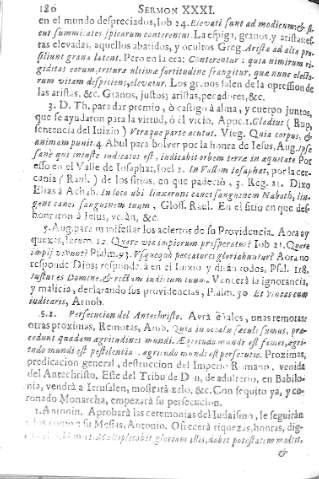 186 SERMON XXXI.
en el mundo despreciados, Iob 24. Elevati sunt ad modicum, & si-
cut summitates spicarum conterentur. La espiga, granos, y aristas es-
tas elevadas, aquellos abatidos, y ocultos Greg. Arista ad alta pro-
siliunt grana latent. Pero en la era: Conterentur: quia nimirum ri-
giditas eorum tritura ultima fortitudine frangitur, qua nunc electo-
rum vitam despiciens, elevatur. Los granos salen de la opression de
las aristas, &c. Granos, justos; aristas, pecadores, &c.
3. D. Th. para dar premio, ò castigo à alma, y cuerpo juntos,
que se ayudaron para la virtud, ò el vicio, Apoc. 1. Gladius (Rup.
sentencia del Iuizio) Utraque parte acutus. Vieg. Quia corpus, &
animam punit. 4. Abul para bolver por la honra de Iesus, Aug. Ipse
sanè qui iniustè iudicatus est, iudicabit orbem terræ in æquitate Por
esso en el Valle de Iosaphat, Ioel 2. In Vallem Iosaphat, por la cer-
cania (Raul.) de los sitios, en que padeciò, 3. Reg. 21. Dixo
Elias à Achab. In loco ubi linxerunt canes sanguinem Naboth, lin-
gent canes sanguinem tuum, Gloss. Raul. En el sitio en que des-
honraron à Iesus, &c.
5. Aug. para manifestar los aciertos de su Providencia. Aora ay
quexas, Ierem. 12. Quare via impiorum prosperatur? Iob 21. Quare
impij vivunt? Psalm. 93. Usquequò peccatores gloriabuntur? Aora no
responde Dios; responderà en el Iuizio y diràn todos, Psal. 118.
Iustus es Domine, & rectum iudicium tuum. Vencerà la ignorancia,
y malicia, declarando sus providencias, Psalm. 50 Et vincas cum
iudicaris, Arnob.
§. 2. Persecucion del Antechristo. Avrà señales, unas remotas
otras proximas. Remotas, Amb. Quia in occasu sæculi sumus, præ-
cedunt quædam ægritudines mundi. Ægritudo mundi est fames, ægri-
tudo mundi est pestilentia, ægritudo mundi est persecutio. Proximas,
predicacion general, destruccion del Imperio Romano, venida
del Antechristo. Este del Tribu de Dan, de adulterio, en Babilo-
nia, vendrà a Ierusalen, mostrarà zelo, &c. Con sequito ya, y co-
ronado Monarcha, empezarà su persecucion.
1. Antonin. Aprobarà las ceremonias del Iudaismo, le seguiràn
como à su Mesias, Antonio. Ofrecerà riquezas, honras, dig-
Multiplicabit gloriam illis, dabit potestatem multis,
&